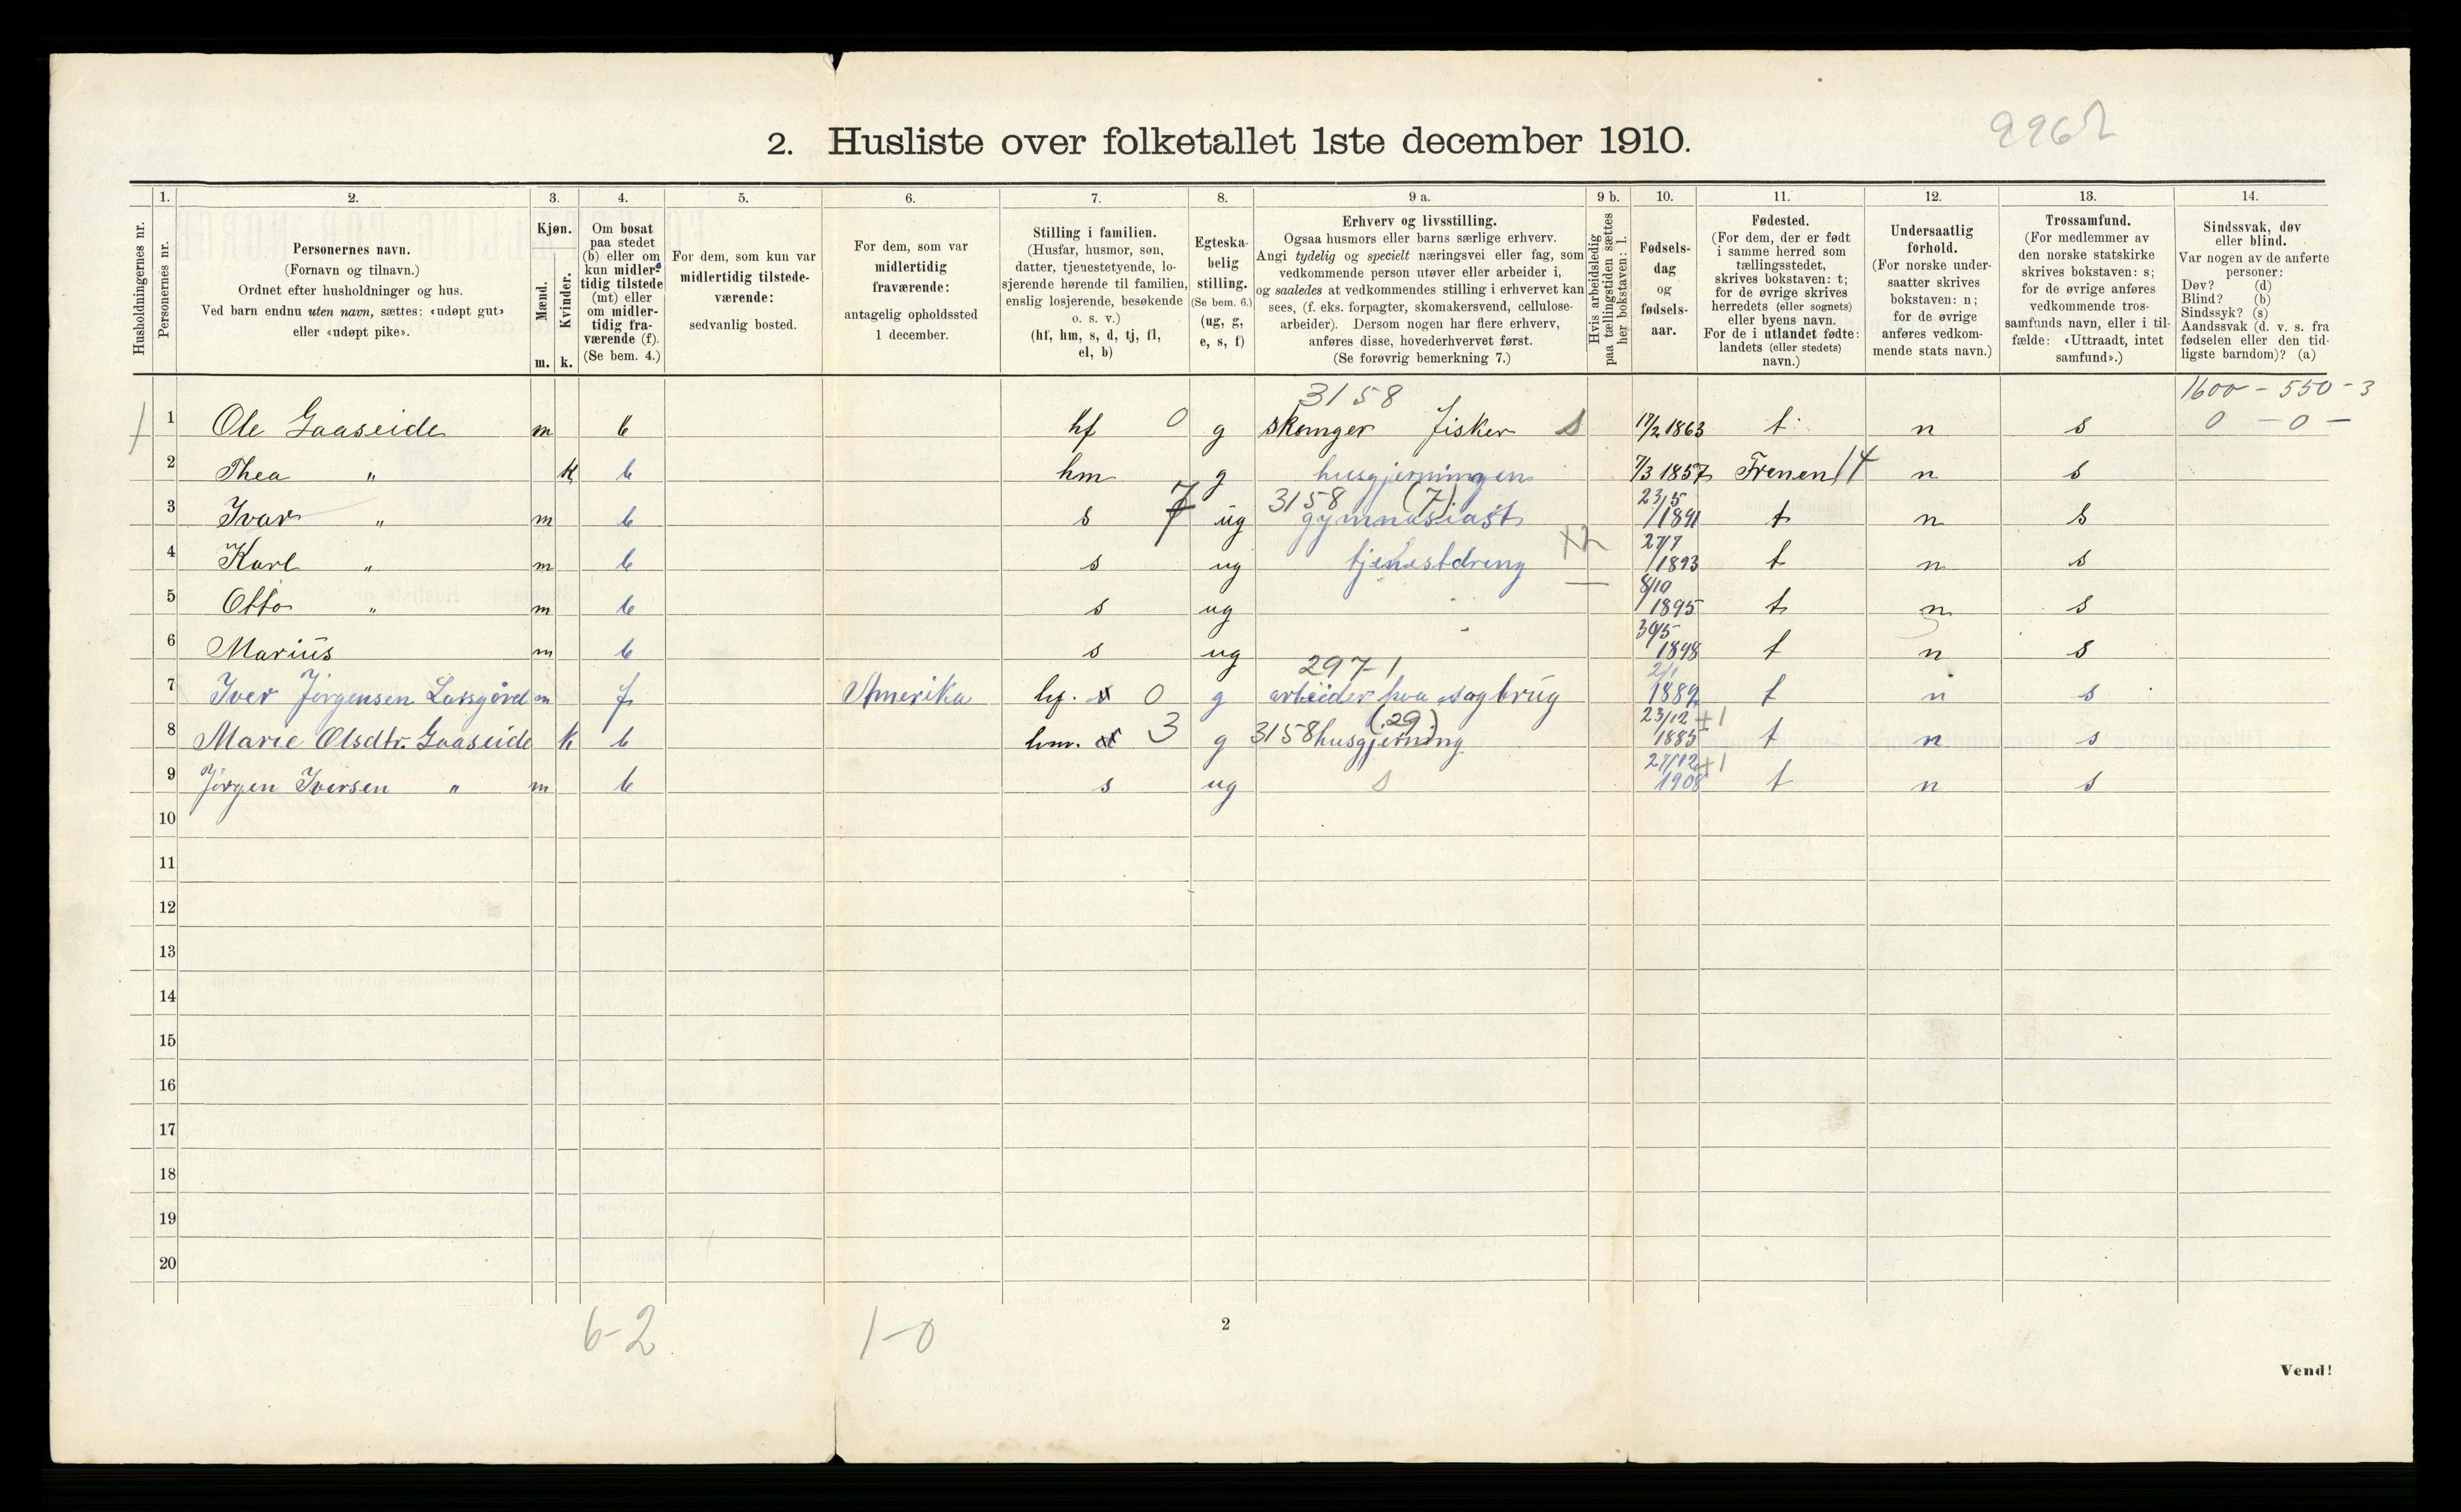 9962
2. Husliste over folketallet 1ste december 1910.
Husholdningernes nr.
1. Personernes nr.
2. Personernes navn.
(Fornavn og tilnavn.)
Ordnet efter husholdninger og hus.
Ved barn endnu uten navn, sættes: «udøpt gut»
eller «udøpt pike».
3. Kjøn.
Mænd. m.
Kvinder. k.
4. Om bosat
paa stedet
(b) eller om
kun midler-
tidig tilstede
(mt) eller
om midler-
tidig fra-
værende (f).
(Se bem. 4.)
5. For dem, som kun var
midlertidig tilstede-
værende:
sedvanlig bosted.
6. For dem, som var
midlertidig
fraværende:
antagelig opholdssted
1 december.
7. Stilling i familien.
(Husfar, husmor, søn,
datter, tjenestetyende, lo-
sjerende hørende til familien,
enslig losjerende, besøkende
o. s. v.)
(hf, hm, s, d, tj, fl,
el, b)
8. Egteska-
belig
stilling.
(Se bem. 6.)
(ug, g,
e, s, f)
9 a. Erhverv og livsstilling.
Ogsaa husmors eller barns særlige erhverv.
Angi tydelig og specielt næringsvei eller fag, som
vedkommende person utøver eller arbeider i,
og saaledes at vedkommendes stilling i erhvervet kan
sees, (f. eks. forpagter, skomakersvend, cellulose-
arbeider). Dersom nogen har flere erhverv,
anføres disse, hovederhvervet først.
(Se forøvrig bemerkning 7.)
9 b. Hvis arbeidsledig
paa tællingstiden sættes
her bokstaven: l.
10. Fødsels-
dag
og
fødsels-
aar.
11. Fødested.
(For dem, der er født
i samme herred som
tællingsstedet,
skrives bokstaven: t;
for de øvrige skrives
herredets (eller sognets)
eller byens navn.
For de i utlandet fødte:
landets (eller stedets)
navn.)
12. Undersaatlig
forhold.
(For norske under-
saatter skrives
bokstaven: n;
for de øvrige
anføres vedkom-
mende stats navn.)
13. Trossamfund.
(For medlemmer av
den norske statskirke
skrives bokstaven: s;
for de øvrige anføres
vedkommende tros-
samfunds navn, eller i til-
fælde: «Uttraadt, intet
samfund».)
14. Sindssvak, døv
eller blind.
Var nogen av de anførte
personer:
Døv? (d)
Blind? (b)
Sindssyk? (s)
Aandssvak (d. v. s. fra
fødselen eller den tid-
ligste barndom)? (a)
3158 1600 - 550 - 3
1 1 Ole Gaaseide m b hf 0 g Fisker s 17/2 1863 t n s 0 - 0 -
2 Thea " k b hm g husgjerningen 7/3 1857 Frenen 14 n s
3158 (7)
3 Ivar " m b s 7 ug gymnasiast 23/5 1891 t n s
4 Karl " m b s ug tjenestdreng 27/7 1893 t n s
5 Otto " m b s ug 8/10 1895 t n s
6 Marius m b s ug 30/5 1898 t n s
2971
7 Iver Jørgensen Larsgård m f Amerika hf. 0 g arbeider hva sagbrug 2/1 1889 t n s
(29)
8 Marie Olsdtr. Gaaseide k b hm. 3 g 3158 husgjerning 23/12 1885 +1 t n s
9 Jørgen Iversen " m b s ug s 27/12 1908 +1 t n s
10
11
12
13
14
15
16
17
18
19
20
6-2 1-0
2
Vend!